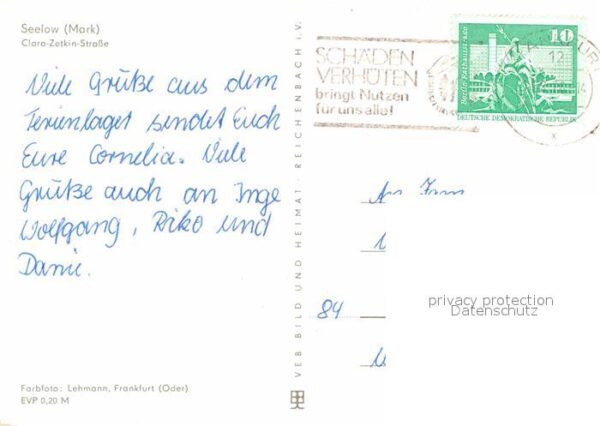 Seelow (Mark)
Clara-Zetkin-Straße
Viele Grüße aus dem
Ferienlager sendet Euch
Eure Cornelia. Viele
Grüße auch an Inge
Wolfgang, Riko und
Danie.
Farbfoto: Lehmann, Frankfurt (Oder)
EVP 0,20 M
VEB BILD UND HEIMAT · REICHENBACH i. V.
SCHÄDEN
VERHÜTEN
bringt Nutzen
für uns alle!
10
DEUTSCHE DEMOKRATISCHE REPUBLIK
12
x
An Fam
84
privacy protection
Datenschutz